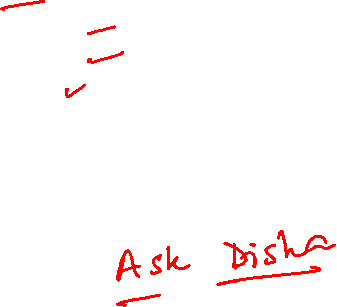 Ask Disha